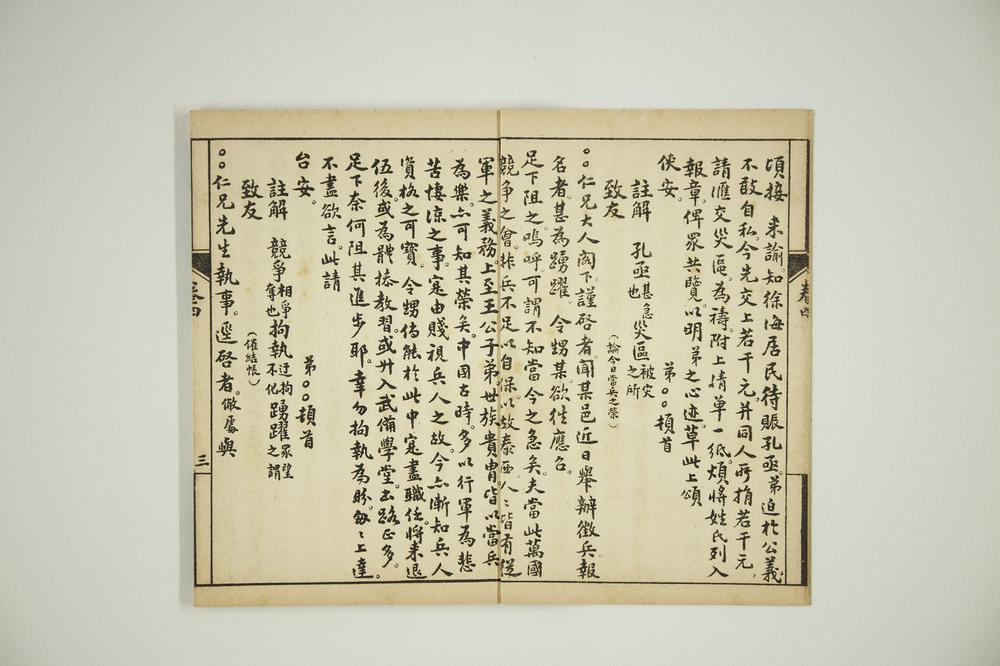 頃接 來諭。知徐海居民待賑孔亟。弟迫於公義。
不敢自私今先交上若干元。并同人所捐若干元。
請滙交災區。為禱。附上清單一紙。煩將姓氏列入
報章。俾眾共覽。以明弟之心迹。草此上頌
俠安。 弟○○頓首
註解 孔亟甚急也 災區被災之所
致友 (論今日當兵之榮)
○○仁兄大人閣下。謹啓者。聞某邑近日舉辦徵兵。報
名者。甚為踴躍。令甥某。欲往應召。
足下阻之。嗚呼。可謂不知當今之急矣。夫當此萬國
競爭之會。非兵不足以自保。以故泰西人人皆有從
軍之義務。上至王公子弟。世族貴冑。皆以當兵
為樂。亦可知其榮矣。中國古時。多以行軍為悲
苦悽涼之事。寔由賤視兵人之故。今亦漸知兵人
資格之可寶。令甥倘能於此中寔盡職任。將來退
伍後。或為體操教習。或升入武備學堂。出路正多。
足下奈何阻其進步耶。幸勿拘執為盼。匆匆上達。
不盡欲言。此請
台安。 弟○○頓首
註解 競爭相爭奪也 拘執迂拘不化 踴躍眾望之謂
致友 (催結帳)
○○仁兄先生執事。逕啓者。敝處與
卷四
三